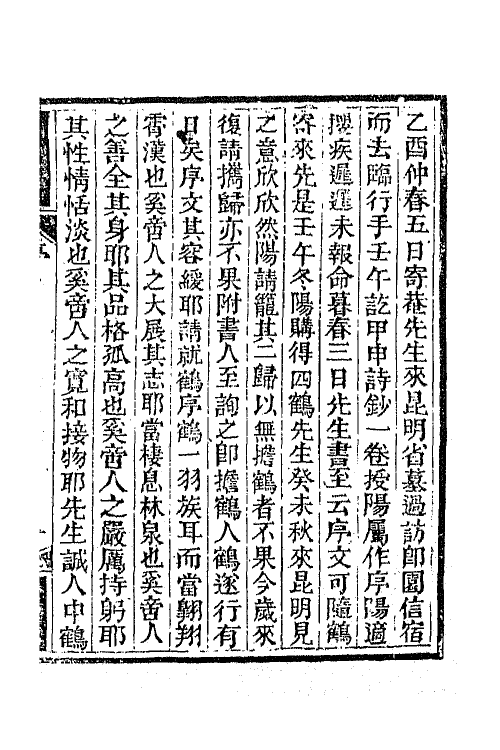 乙酉仲春五日寄菴先生來昆明省墓過訪卽園信宿
而去臨行手壬午訖甲申詩鈔一卷授陽屬作序陽適
攖疾遲遲未報命暮春三日先生書至云序文可隨鶴
寄來先是壬午冬陽購得四鶴先生癸未秋來昆明見
之意欣欣然陽請籠其二歸以無擔鶴者不果今歲來
復請攜歸亦不果附書人至詢之卽擔鶴人鶴遂行有
日矣序文其容緩耶請就鶴序鶴一羽族耳而當翺翔
霄漢也奚啻人之大展其志耶當棲息林泉也奚啻人
之善全其身耶其品格孤高也奚啻人之嚴厲持躬耶
其性情恬淡也奚啻人之寬和接物耶先生誠人中鶴